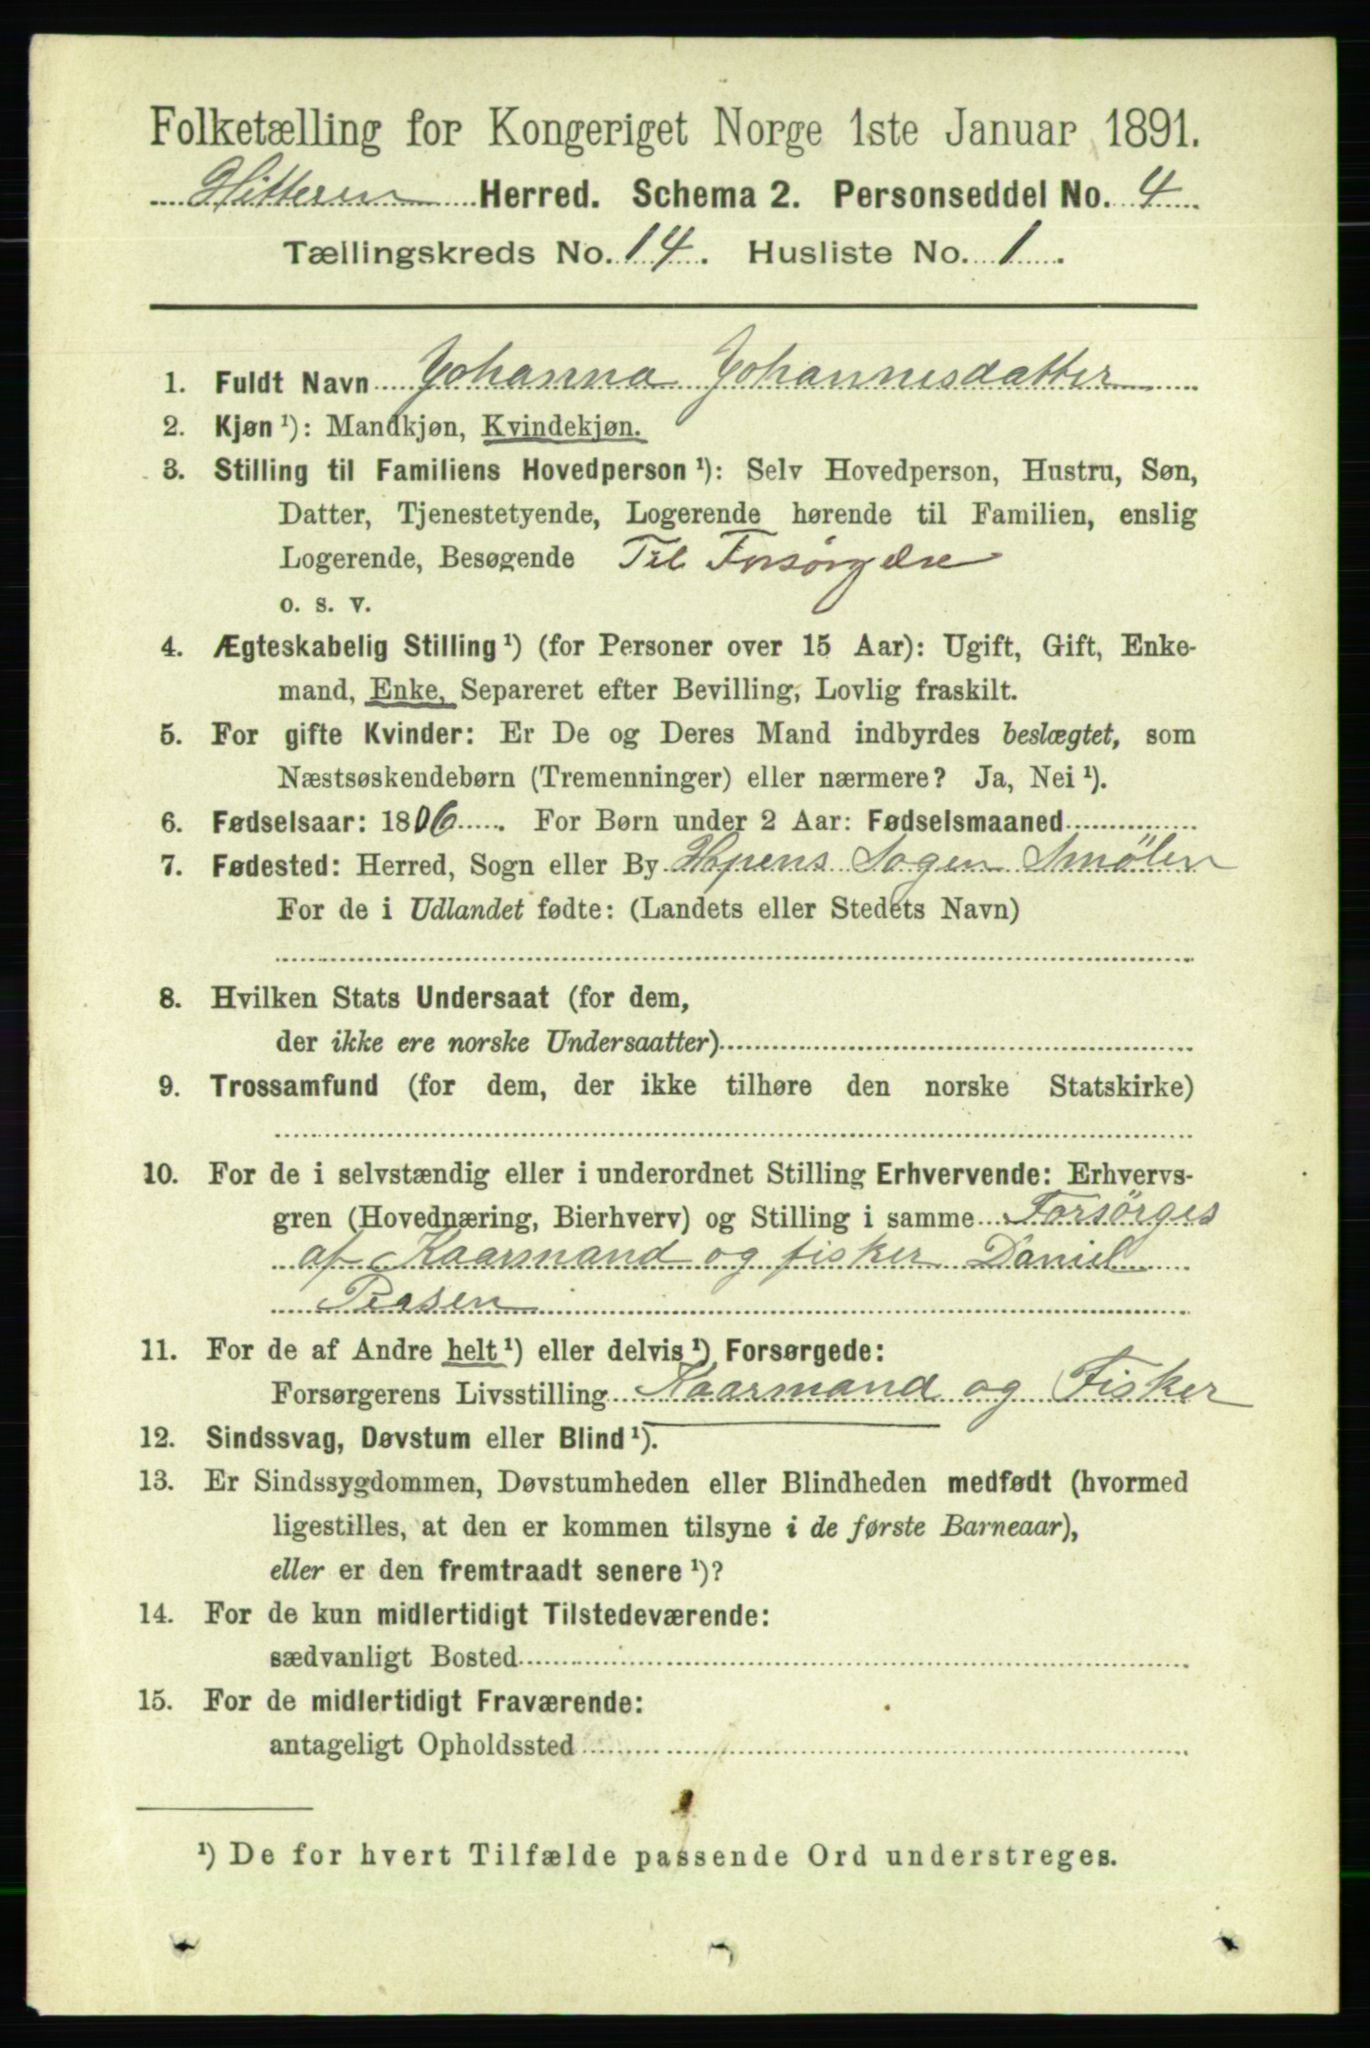 Folketælling for Kongeriget Norge 1ste Januar 1891.
Hitteren Herred. Schema 2. Personseddel No. 4
Tællingskreds No. 14. Husliste No. 1.
1. Fuldt Navn Johanna Johannesdatter
2. Kjøn ¹): Mandkjøn, Kvindekjøn.
3. Stilling til Familiens Hovedperson ¹): Selv Hovedperson, Hustru, Søn,
Datter, Tjenestetyende, Logerende hørende til Familien, enslig
Logerende, Besøgende Til Forsørgelse
o. s. v.
4. Ægteskabelig Stilling ¹) (for Personer over 15 Aar): Ugift, Gift, Enke-
mand, Enke, Separeret efter Bevilling, Lovlig fraskilt.
5. For gifte Kvinder: Er De og Deres Mand indbyrdes beslægtet, som
Næstsøskendebørn (Tremenninger) eller nærmere? Ja, Nei ¹).
6. Fødselsaar: 1806. For Børn under 2 Aar: Fødselsmaaned
7. Fødested: Herred, Sogn eller By Hopens Sogen Smölen
For de i Udlandet fødte: (Landets eller Stedets Navn)
8. Hvilken Stats Undersaat (for dem,
der ikke ere norske Undersaatter)
9. Trossamfund (for dem, der ikke tilhøre den norske Statskirke)
10. For de i selvstændig eller i underordnet Stilling Erhvervende: Erhvervs-
gren (Hovednæring, Bierhverv) og Stilling i samme Forsörges
af Kaarmand og fisker Daniel
11. For de af Andre helt ¹) eller delvis ¹) Forsørgede:
Forsørgerens Livsstilling Kaarmand og Fisker
12. Sindssvag, Døvstum eller Blind ¹).
13. Er Sindssygdommen, Døvstumheden eller Blindheden medfødt (hvormed
ligestilles, at den er kommen tilsyne i de første Barneaar),
eller er den fremtraadt senere ¹)?
14. For de kun midlertidigt Tilstedeværende:
sædvanligt Bosted
15. For de midlertidigt Fraværende:
antageligt Opholdssted
¹) De for hvert Tilfælde passende Ord understreges.